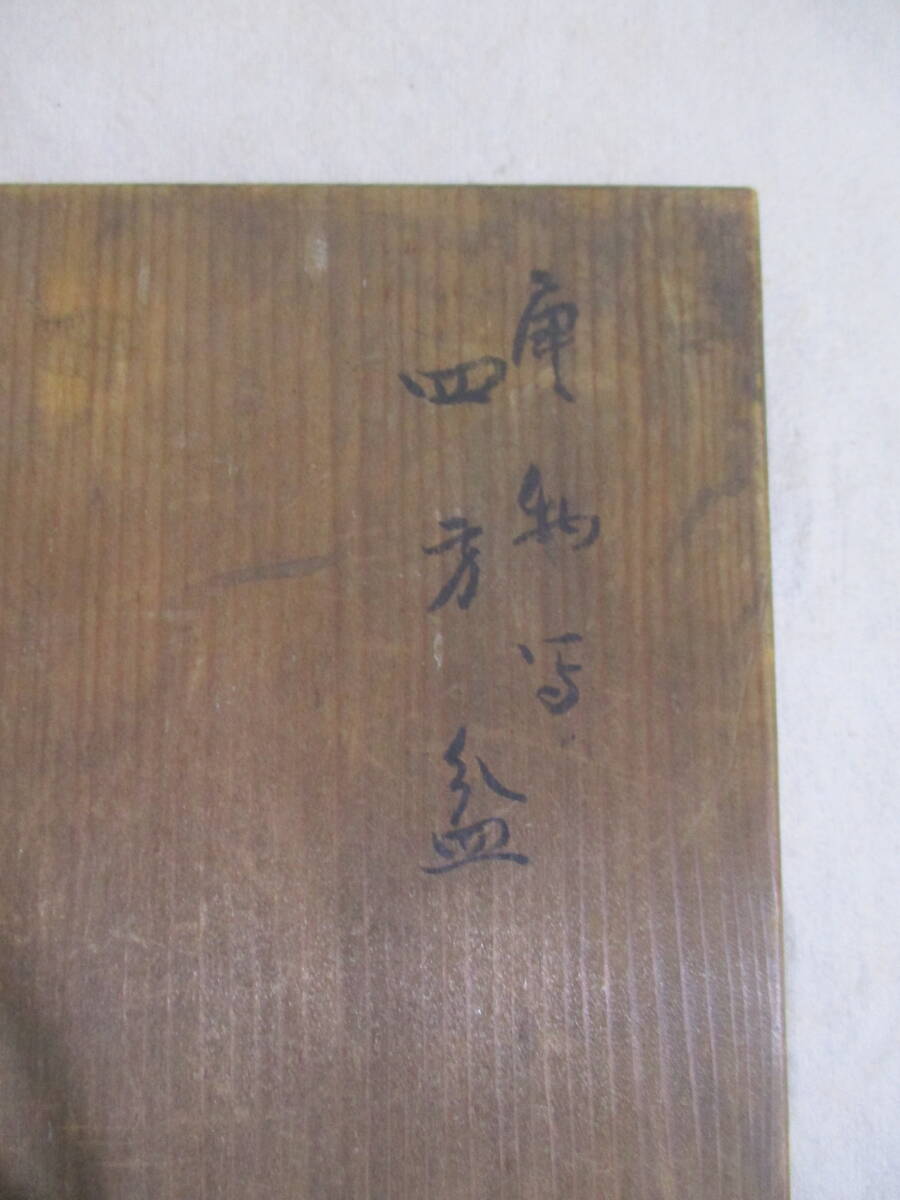 唐物写
四方盆